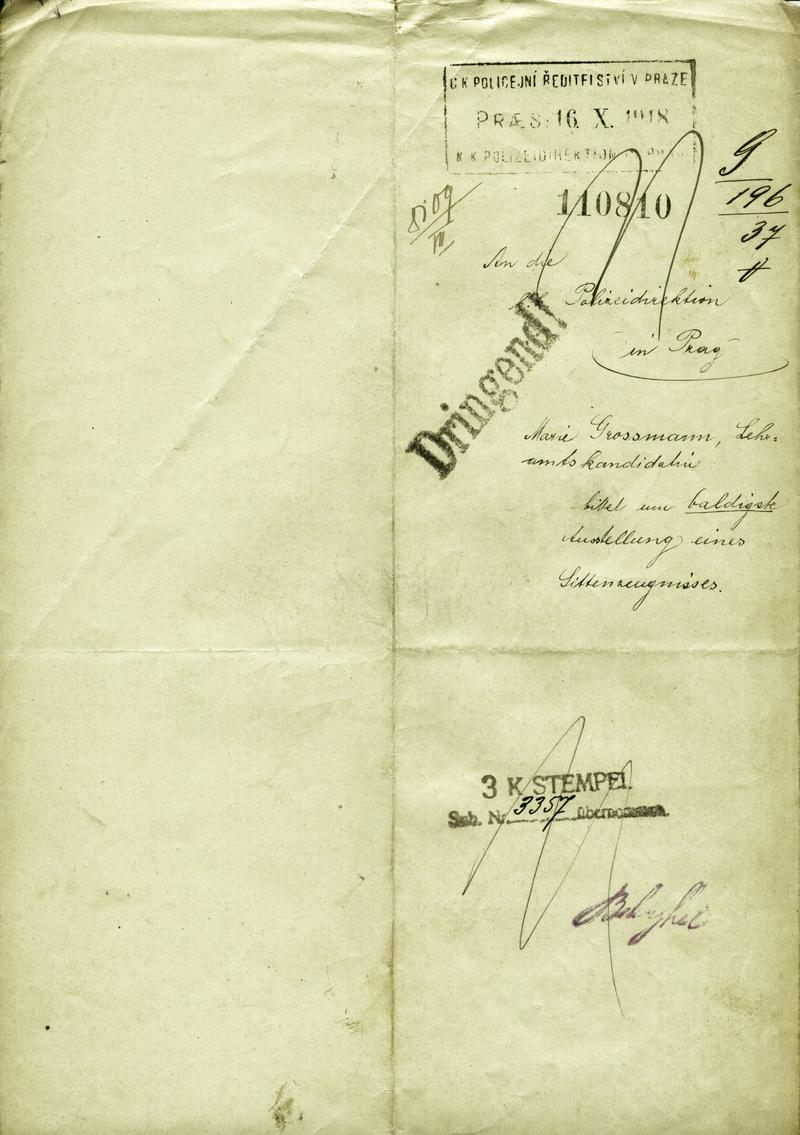 C K POLICEJNÍ ŘEDITELSTVÍ V PRAZE
PRÆS. 16. X. 1918
K K POLIZEIDIREKTION PRAG
110810
9
196
37
An die
k.k. Polizeidirektion
in Prag
Dringend!
Marie Grossmann, Lehr-
amtskandidatin
bittet um baldigste
Ausstellung eines
Sittenzeugnisses.
3 K STEMPEL
Sub. Nr. 3357 übernommen.